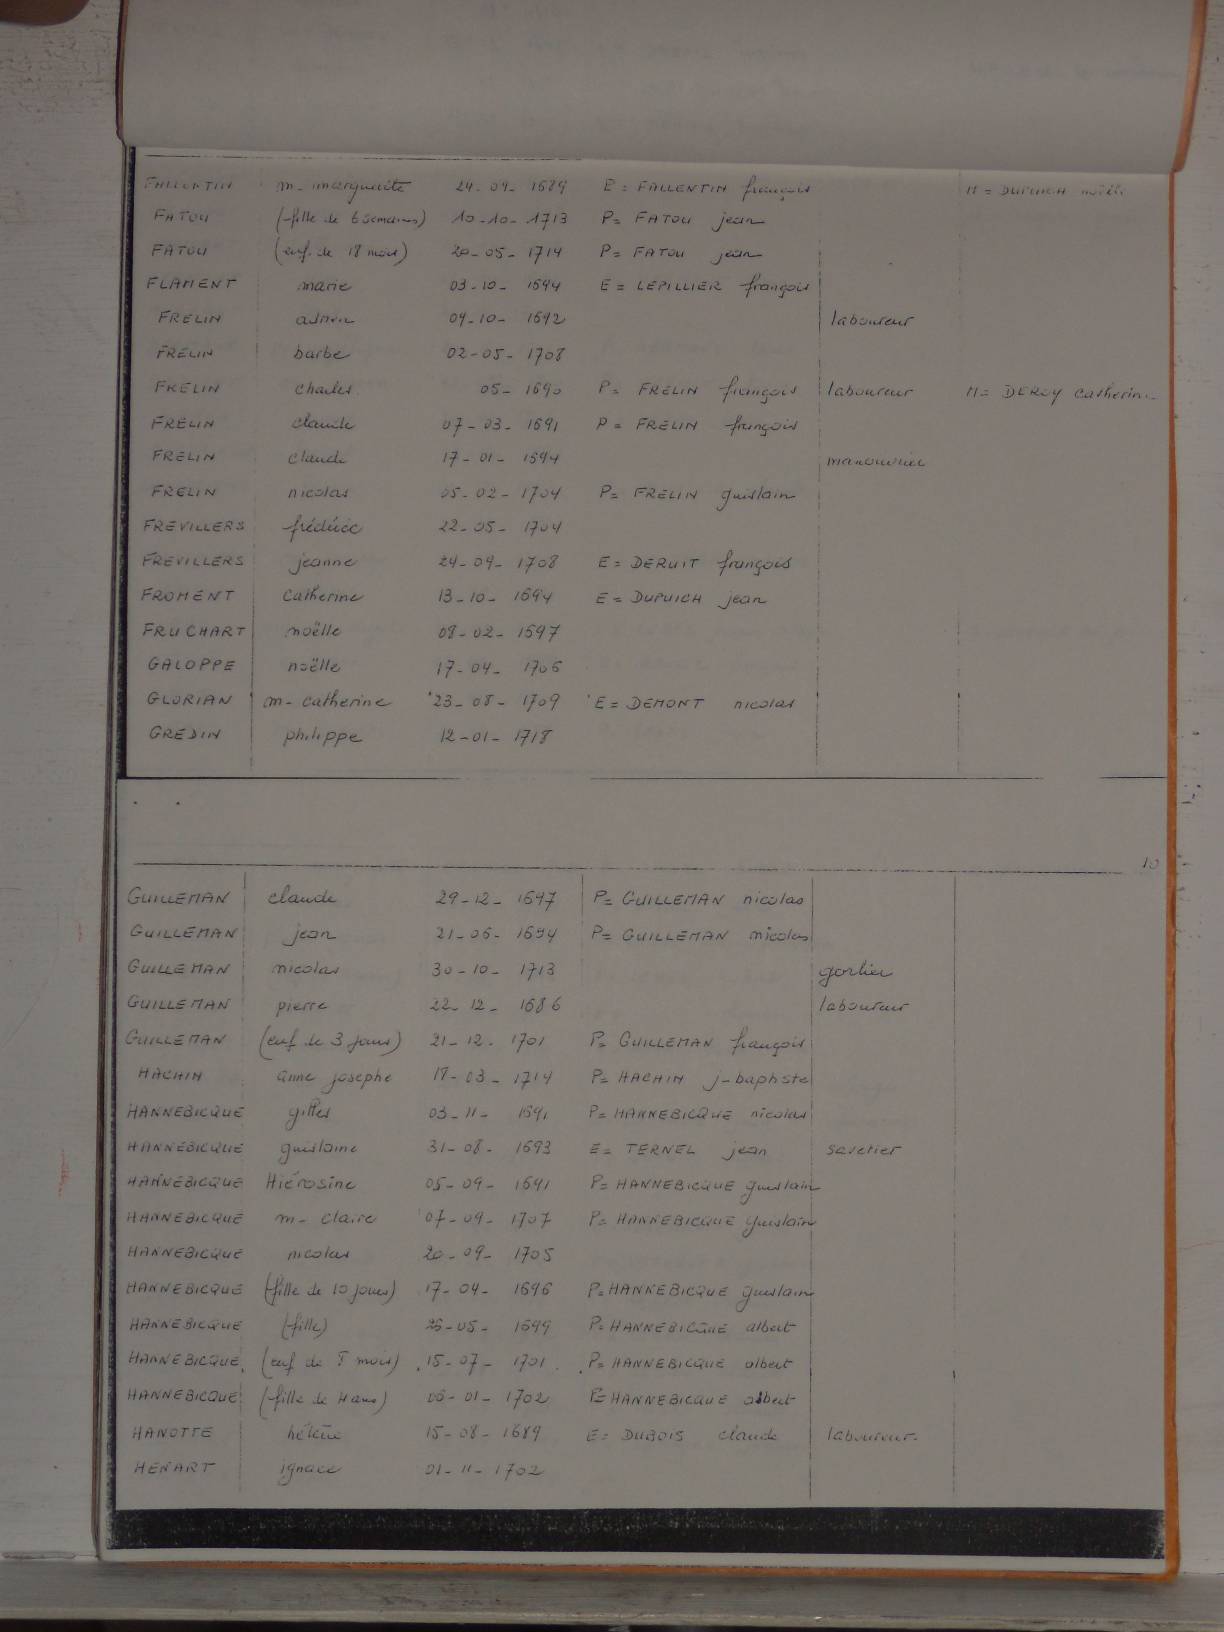 FALLENTIN m- marguerite 24-09-1689 E = FALLENTIN françois M = DUPUICH noëlle
FATOU (fille de 6 semaines) 10-10-1713 P= FATOU jean
FATOU (enf. de 18 mois) 20-05-1714 P= FATOU jean
FLAMENT marie 03-10-1694 E = LEPILLIER françois
FRELIN adrien 04-10-1692 laboureur
FRELIN barbe 02-05-1708
FRELIN charles 05-1690 P= FRELIN françois laboureur M= DEROY catherine
FRELIN claude 07-03-1691 P= FRELIN françois
FRELIN claude 17-01-1694 manouvrier
FRELIN nicolas 05-02-1704 P= FRELIN guislain
FREVILLERS frédéric 22-05-1704
FREVILLERS jeanne 24-09-1708 E= DERUIT françois
FROMENT catherine 13-10-1694 E= DUPUICH jean
FRUCHART noëlle 08-02-1697
GALOPPE noëlle 17-04-1706
GLORIAN m- catherine 23-08-1709 E= DEMONT nicolas
GREDIN philippe 12-01-1718
10
GUILLEMAN claude 29-12-1697 P= GUILLEMAN nicolas
GUILLEMAN jean 21-06-1694 P= GUILLEMAN nicolas
GUILLEMAN nicolas 30-10-1713 gorlier
GUILLEMAN pierre 22-12-1686 laboureur
GUILLEMAN (enf de 3 jours) 21-12-1701 P= GUILLEMAN françois
HACHIN anne josephe 18-03-1714 P= HACHIN j-baptiste
HANNEBICQUE gilles 03-11-1691 P= HANNEBICQUE nicolas
HANNEBICQUE guislaine 31-08-1693 E= TERNEL jean savetier
HANNEBICQUE Hiérosine 05-09-1691 P= HANNEBICQUE guislain
HANNEBICQUE m- claire 07-09-1707 P= HANNEBICQUE guislain
HANNEBICQUE nicolas 20-09-1705
HANNEBICQUE (fille de 10 jours) 17-04-1696 P= HANNEBICQUE guislain
HANNEBICQUE (fille) 05-1699 P= HANNEBICQUE albert
HANNEBICQUE (enf de 8 mois) 15-07-1701 P= HANNEBICQUE albert
HANNEBICQUE (fille de 4 ans) 06-01-1702 P= HANNEBICQUE albert
HANOTTE hélène 15-08-1689 E= DUBOIS claude laboureur
HENART ignace 01-11-1702